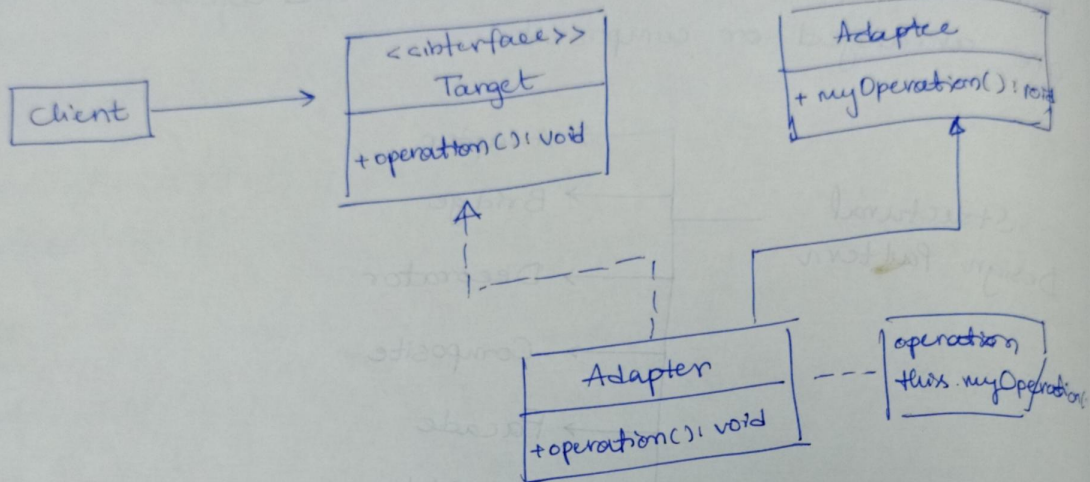 Client
<<interface>>
Target
+operation(): void
Adaptee
+ myOperation(): void
Adapter
+operation(): void
operation
this.myOperation(